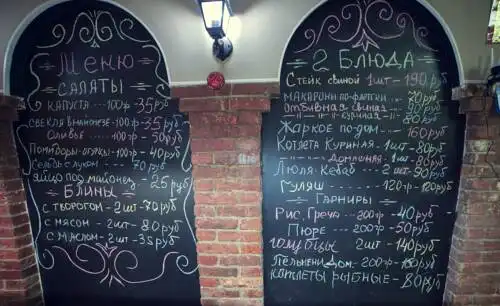 Меню
САЛАТЫ
КАПУСТА ---- 100гр - 35руб
СВЕКЛА В МАИОНЕЗЕ - 100гр - 35руб
ОЛИВЬЕ ---- 100гр - 50руб
Помидоры-огурцы - 100гр - 40руб
Сельдь с луком ---- 70руб
яйцо под майонез - 25руб
БЛИНЫ
С ТВОРОГОМ - 2шт - 70руб
С МЯСОМ - 2шт - 80руб
С МАСЛОМ - 2шт - 35руб
2 БЛЮДА
СТЕЙК свиной 1шт - 190руб
МАКАРОНЫ ПО-ФЛОТСКИ ... 70руб
отбивная свиная
куриная - 80руб
Жаркое по-дом. --- 160руб
КОТЛЕТА КУРИНАЯ - 1шт - 80руб
Домашняя - 1шт - 80руб
Люля-Кебаб -- 2шт - 90руб
ГУЛЯШ ---- 120гр - 120руб
ГАРНИРЫ
РИС, ГРЕЧА - 200гр - 40руб
ПЮРЕ --- 200гр - 50руб
голубцы 2шт - 140руб
Пельмени Дом. - 200гр -
КОТЛЕТЫ РЫБНЫЕ - 80руб